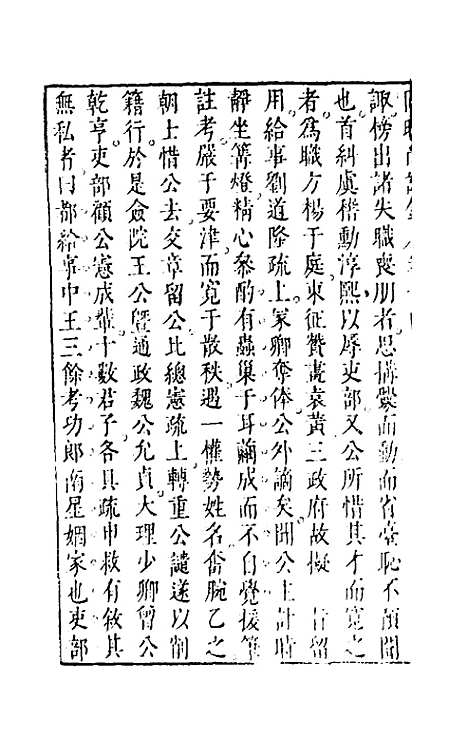 諏榜出諸失職喪朋者思搆釁而動而省臺恥不預聞
也首糾虞稽勳淳熙以辱吏部又公所惜其才而寬之
者爲職方楊于庭東征贊畫袁黃三政府故擬 旨留
用給事劉道隆疏上冢卿奪俸公外謫矣聞公主計時
靜坐篝燈精心叅酌有蟲巢于耳繭成而不自覺援筆
註考嚴于要津而寬于散秩遇一權勢姓名奮腕乙之
朝士惜公去交章留公比總憲疏上轉重公譴遂以削
籍行於是僉院王公暨通政魏公允貞大理少卿曾公
乾亨吏部顧公憲成輩十數君子各具疏申救有敘其
無私者曰都給事中王三餘考功郎南星姻家也吏部